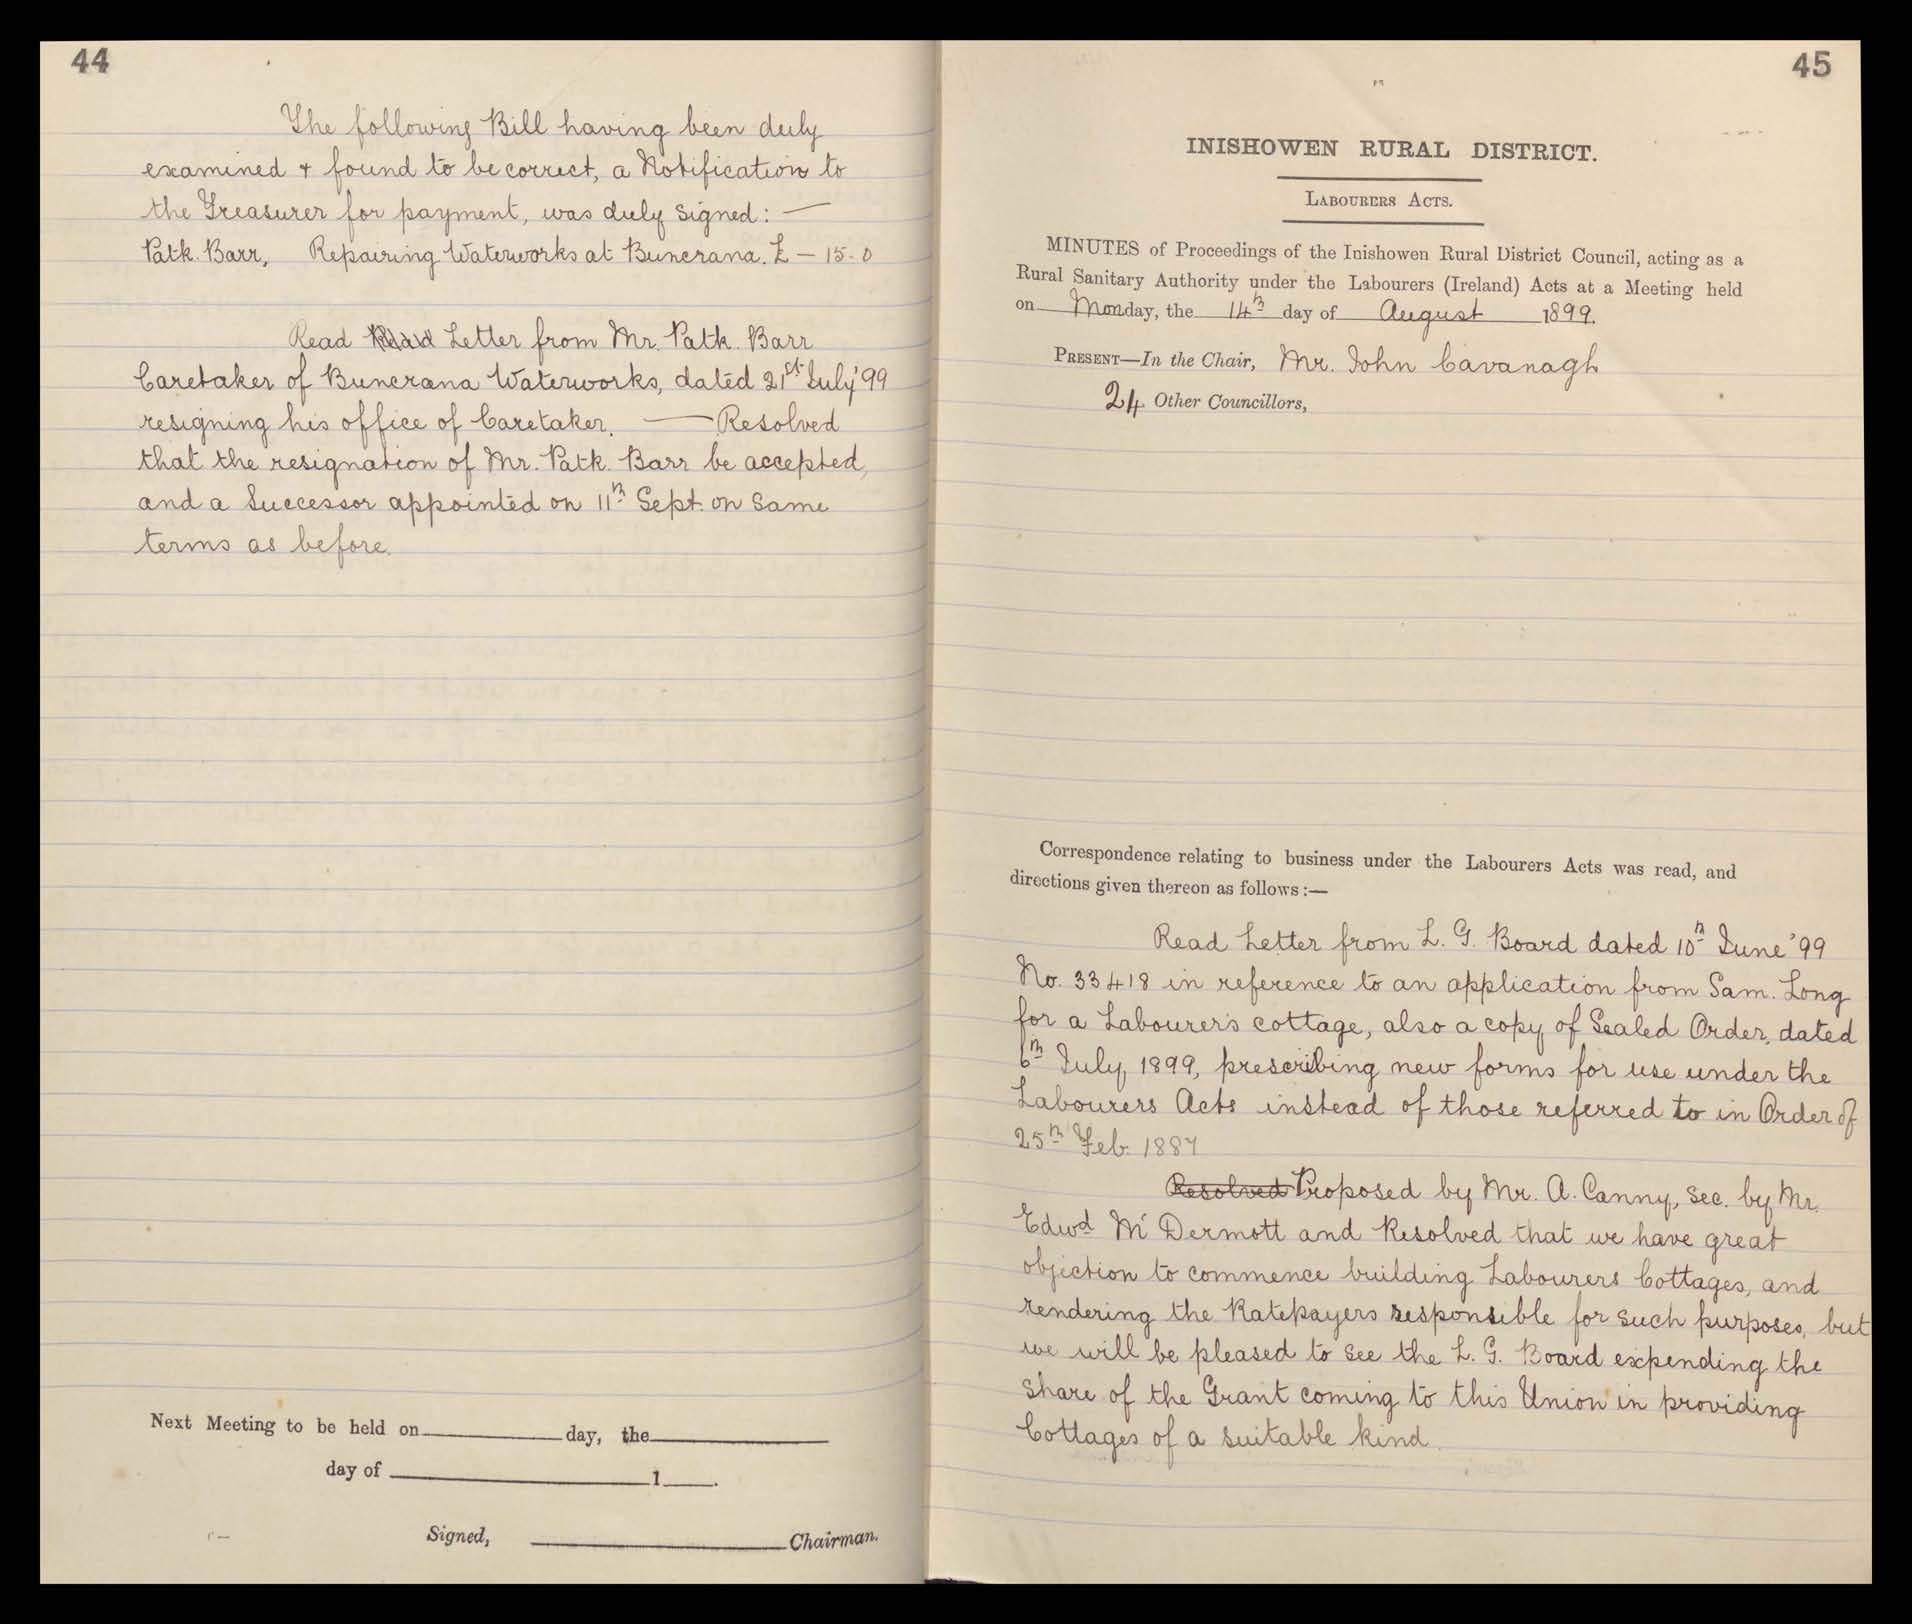 44
The following Bill having been duly
examined & found to be correct, a Notification to
the Treasurer for payment, was duly signed: —
Patk. Barr, Repairing Waterworks at Buncrana. £ — 15. 0
Read Letter from Mr. Patk. Barr
Caretaker of Buncrana Waterworks, dated 21st July '99
resigning his office of Caretaker. — Resolved
that the resignation of Mr. Patk. Barr be accepted,
and a Successor appointed on 11th Sept. on same
terms as before.
Next Meeting to be held on day, the
day of 1 .
Signed, Chairman.
45
INISHOWEN RURAL DISTRICT.
LABOURERS ACTS.
MINUTES of Proceedings of the Inishowen Rural District Council, acting as a
Rural Sanitary Authority under the Labourers (Ireland) Acts at a Meeting held
on Monday, the 14th day of August 1899.
PRESENT—In the Chair, Mr. John Cavanagh
24 Other Councillors,
Correspondence relating to business under the Labourers Acts was read, and
directions given thereon as follows:—
Read Letter from L. G. Board dated 10th June '99
No. 33418 in reference to an application from Sam. Long
for a Labourer's cottage, also a copy of Sealed Order, dated
6th July 1899, prescribing new forms for use under the
Labourers Acts instead of those referred to in Order of
25th Feb. 1887
Resolved Proposed by Mr. A. Canny, sec. by Mr.
Edwd McDermott and Resolved that we have great
objection to commence building Labourers Cottages, and
rendering the Ratepayers responsible for such purposes, but
we will be pleased to see the L. G. Board expending the
share of the Grant coming to this Union in providing
Cottages of a suitable kind.